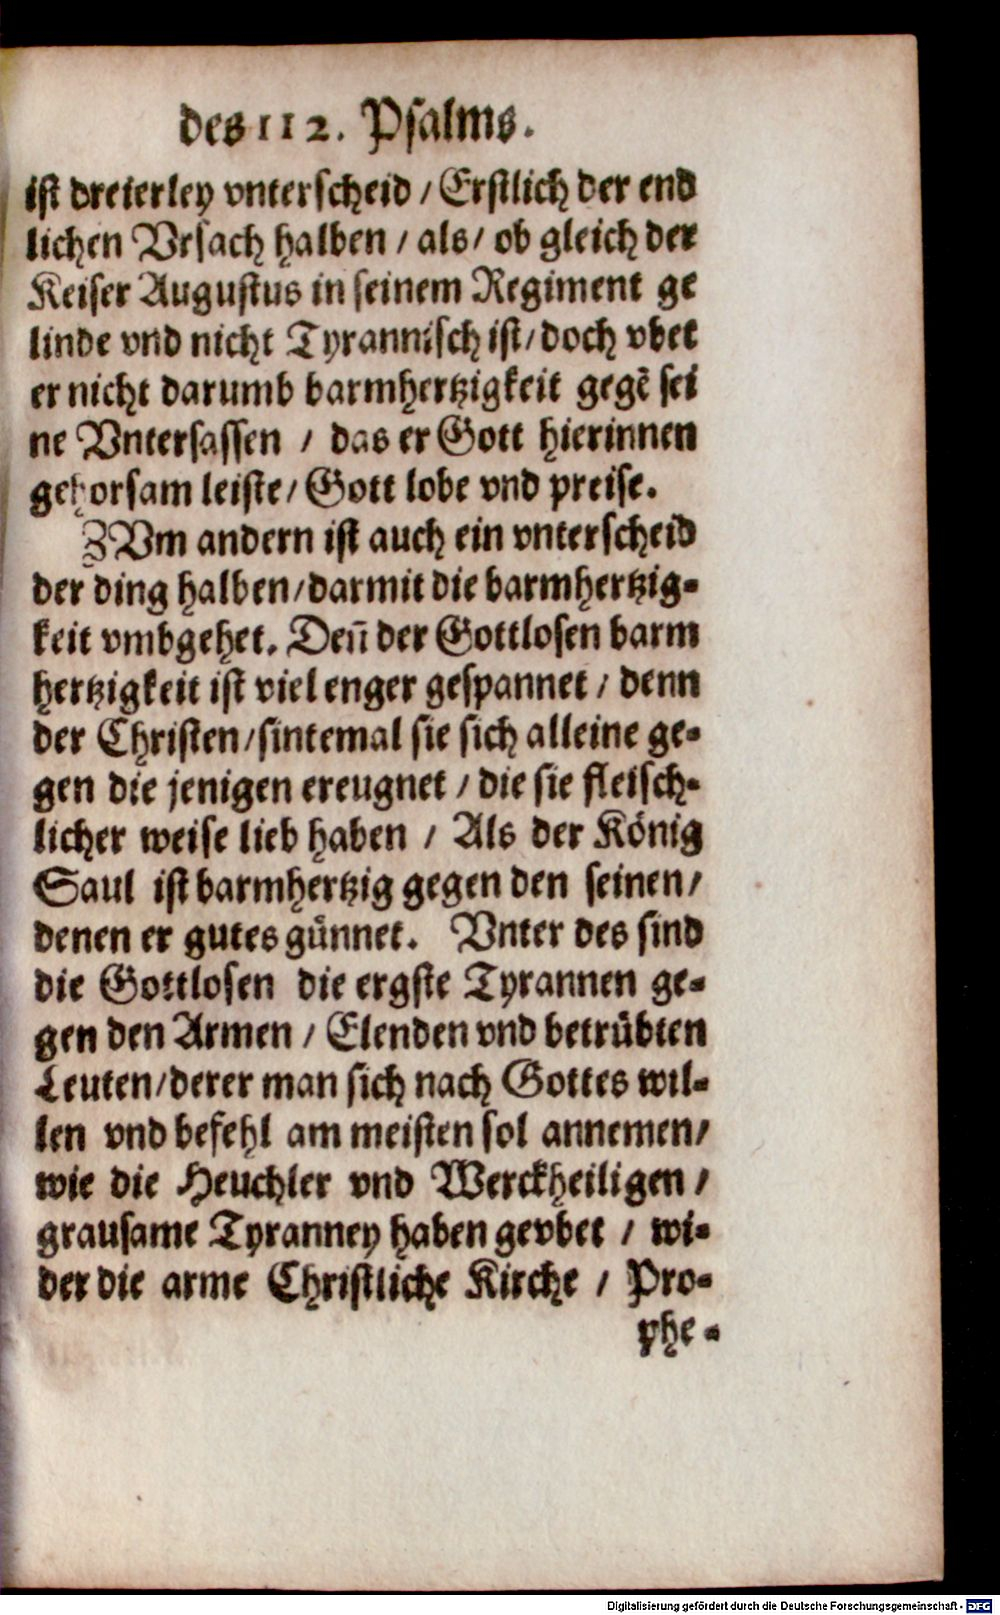 des 112. Psalms.
ist dreierley vnterscheid / Erstlich der end
lichen Vrsach halben / als / ob gleich der
Keiser Augustus in seinem Regiment ge
linde vnd nicht Tyrannisch ist / doch vbet
er nicht darumb barmhertzigkeit gegē sei
ne Vntersassen / das er Gott hierinnen
gehorsam leiste / Gott lobe vnd preise.
ZVm andern ist auch ein vnterscheid
der ding halben / darmit die barmhertzig-
keit vmbgehet. Deñ der Gottlosen barm
hertzigkeit ist viel enger gespannet / denn
der Christen / sintemal sie sich alleine ge-
gen die jenigen ereugnet / die sie fleisch-
licher weise lieb haben / Als der König
Saul ist barmhertzig gegen den seinen /
denen er gutes günnet. Vnter des sind
die Gottlosen die ergste Tyrannen ge-
gen den Armen / Elenden vnd betrübten
Leuten / derer man sich nach Gottes wil-
len vnd befehl am meisten sol annemen /
wie die Heuchler vnd Werckheiligen /
grausame Tyranney haben gevbet / wi-
der die arme Christliche Kirche / Pro-
phe-
Digitalisierung gefördert durch die Deutsche Forschungsgemeinschaft - DFG